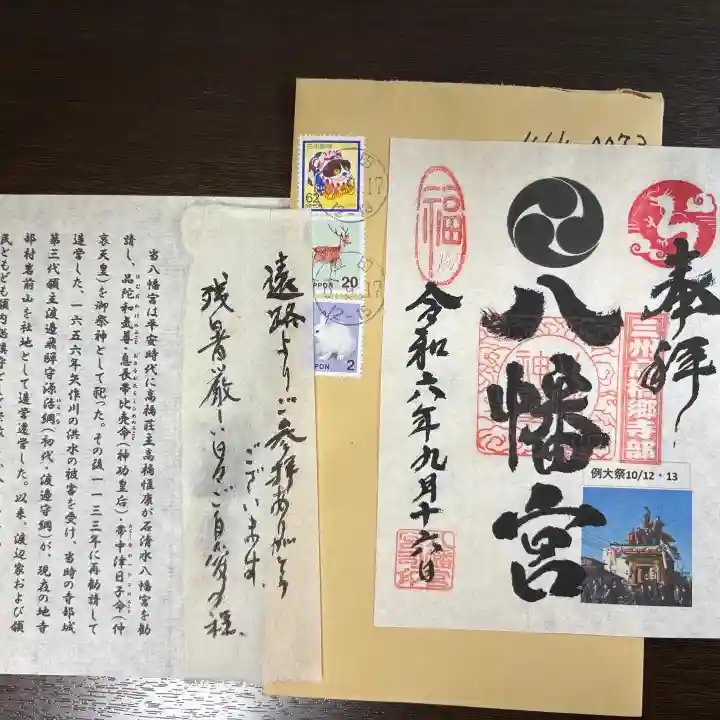 奉拝
八幡宮
令和六年九月十六日
福
三州高橋郷寺部
例大祭10/12・13
日本郵便
62
NIPPON
20
NIPPON
2
NIPPON
17
遠路よりご参拝ありがとう
ございます。
残暑厳しい日々ご自愛の程、
当八幡宮は平安時代に高橋荘主高橋惟康が石清水八幡宮を勧
請し、品陀和気尊・息長帯比売命(神功皇后)・帯中津日子命(仲
哀天皇)を御祭神として祀った。その後一一三三年に再勧請して
造営した。一六五六年矢作川の洪水の被害を受け、当時の寺部城
第三代領主渡邉飛騨守源治綱(初代・渡邉守綱)が、現在の地寺
部村岩前山を社地として造営遷宮した。以来、渡邉家および領